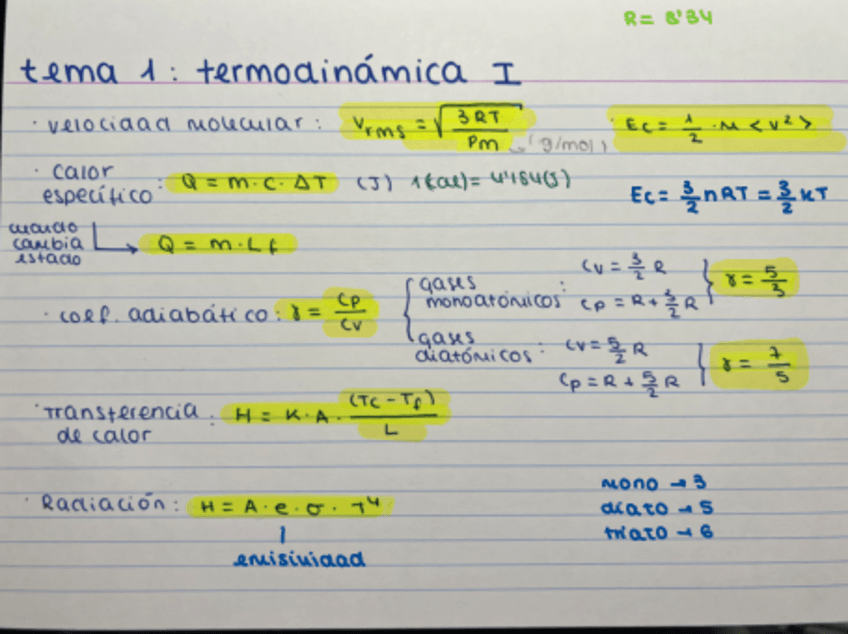 R = 8'34
tema 1: termodinámica I
· velocidad molecular: Vrms = √(3RT / Pm) (g/mol) Ec = 1/2 · m <v²>
· calor específico: Q = m · c · ΔT (J) 1(cal) = 4'184(J)
Ec = 3/2 nRT = 3/2 kT
cuando cambia estado → Q = m · Lf
· coef. adiabático: γ = Cp / Cv
gases monoatómicos: Cv = 3/2 R
Cp = R + 3/2 R
γ = 5/3
gases diatómicos: Cv = 5/2 R
Cp = R + 5/2 R
γ = 7/5
· Transferencia de calor: H = K · A · (Tc - Tf) / L
· Radiación: H = A · e · σ · T⁴
emisividad
mono → 3
diato → 5
triato → 6